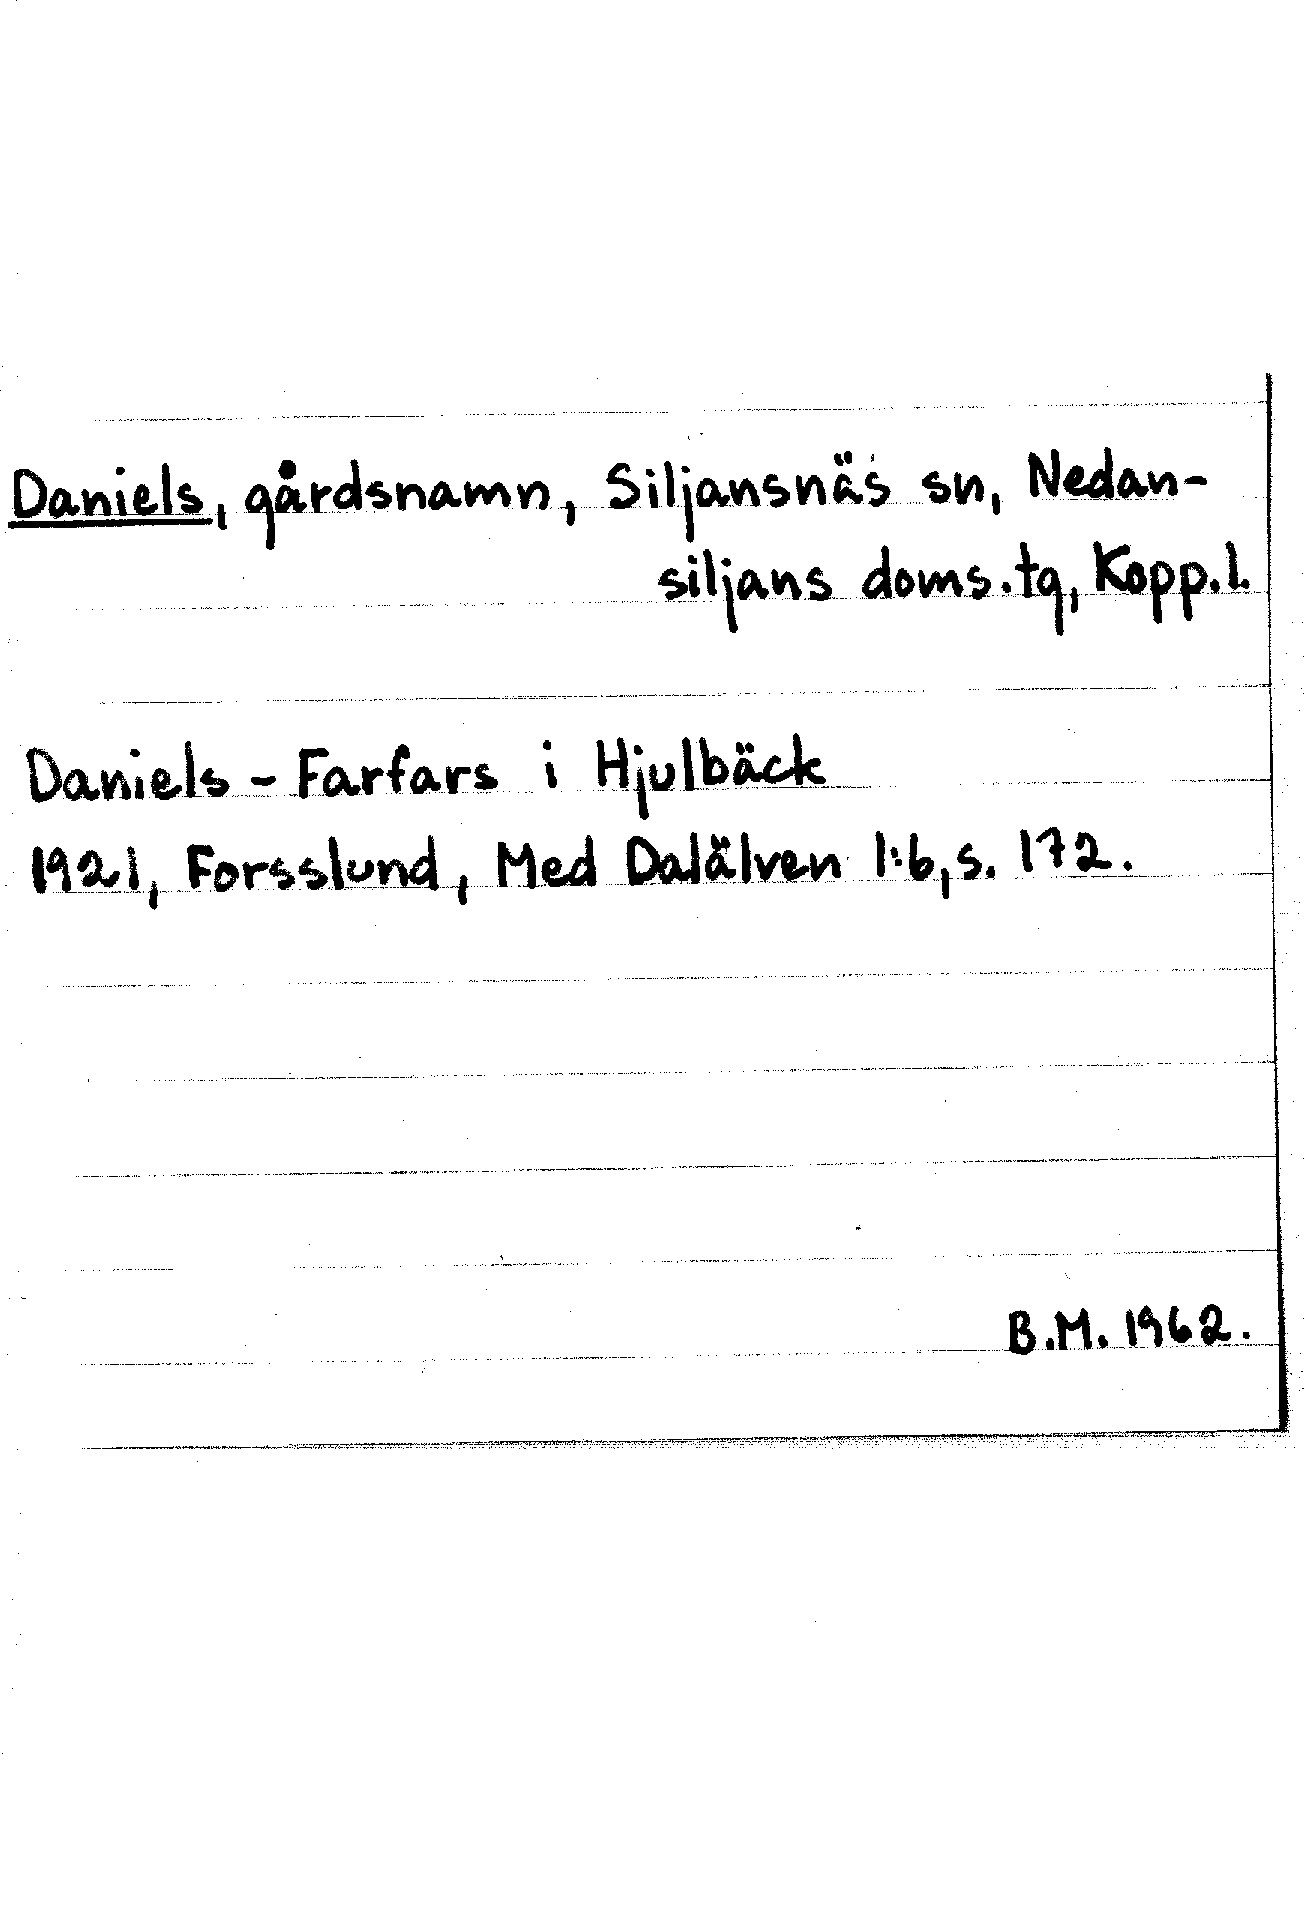 Daniels, gårdsnamn, Siljansnäs sn, Nedan-
siljans doms.tg, Kopp.l.
Daniels - Farfars i Hjulbäck
1921, Forsslund, Med Dalälven 1:6, s. 172.
B.M. 1962.